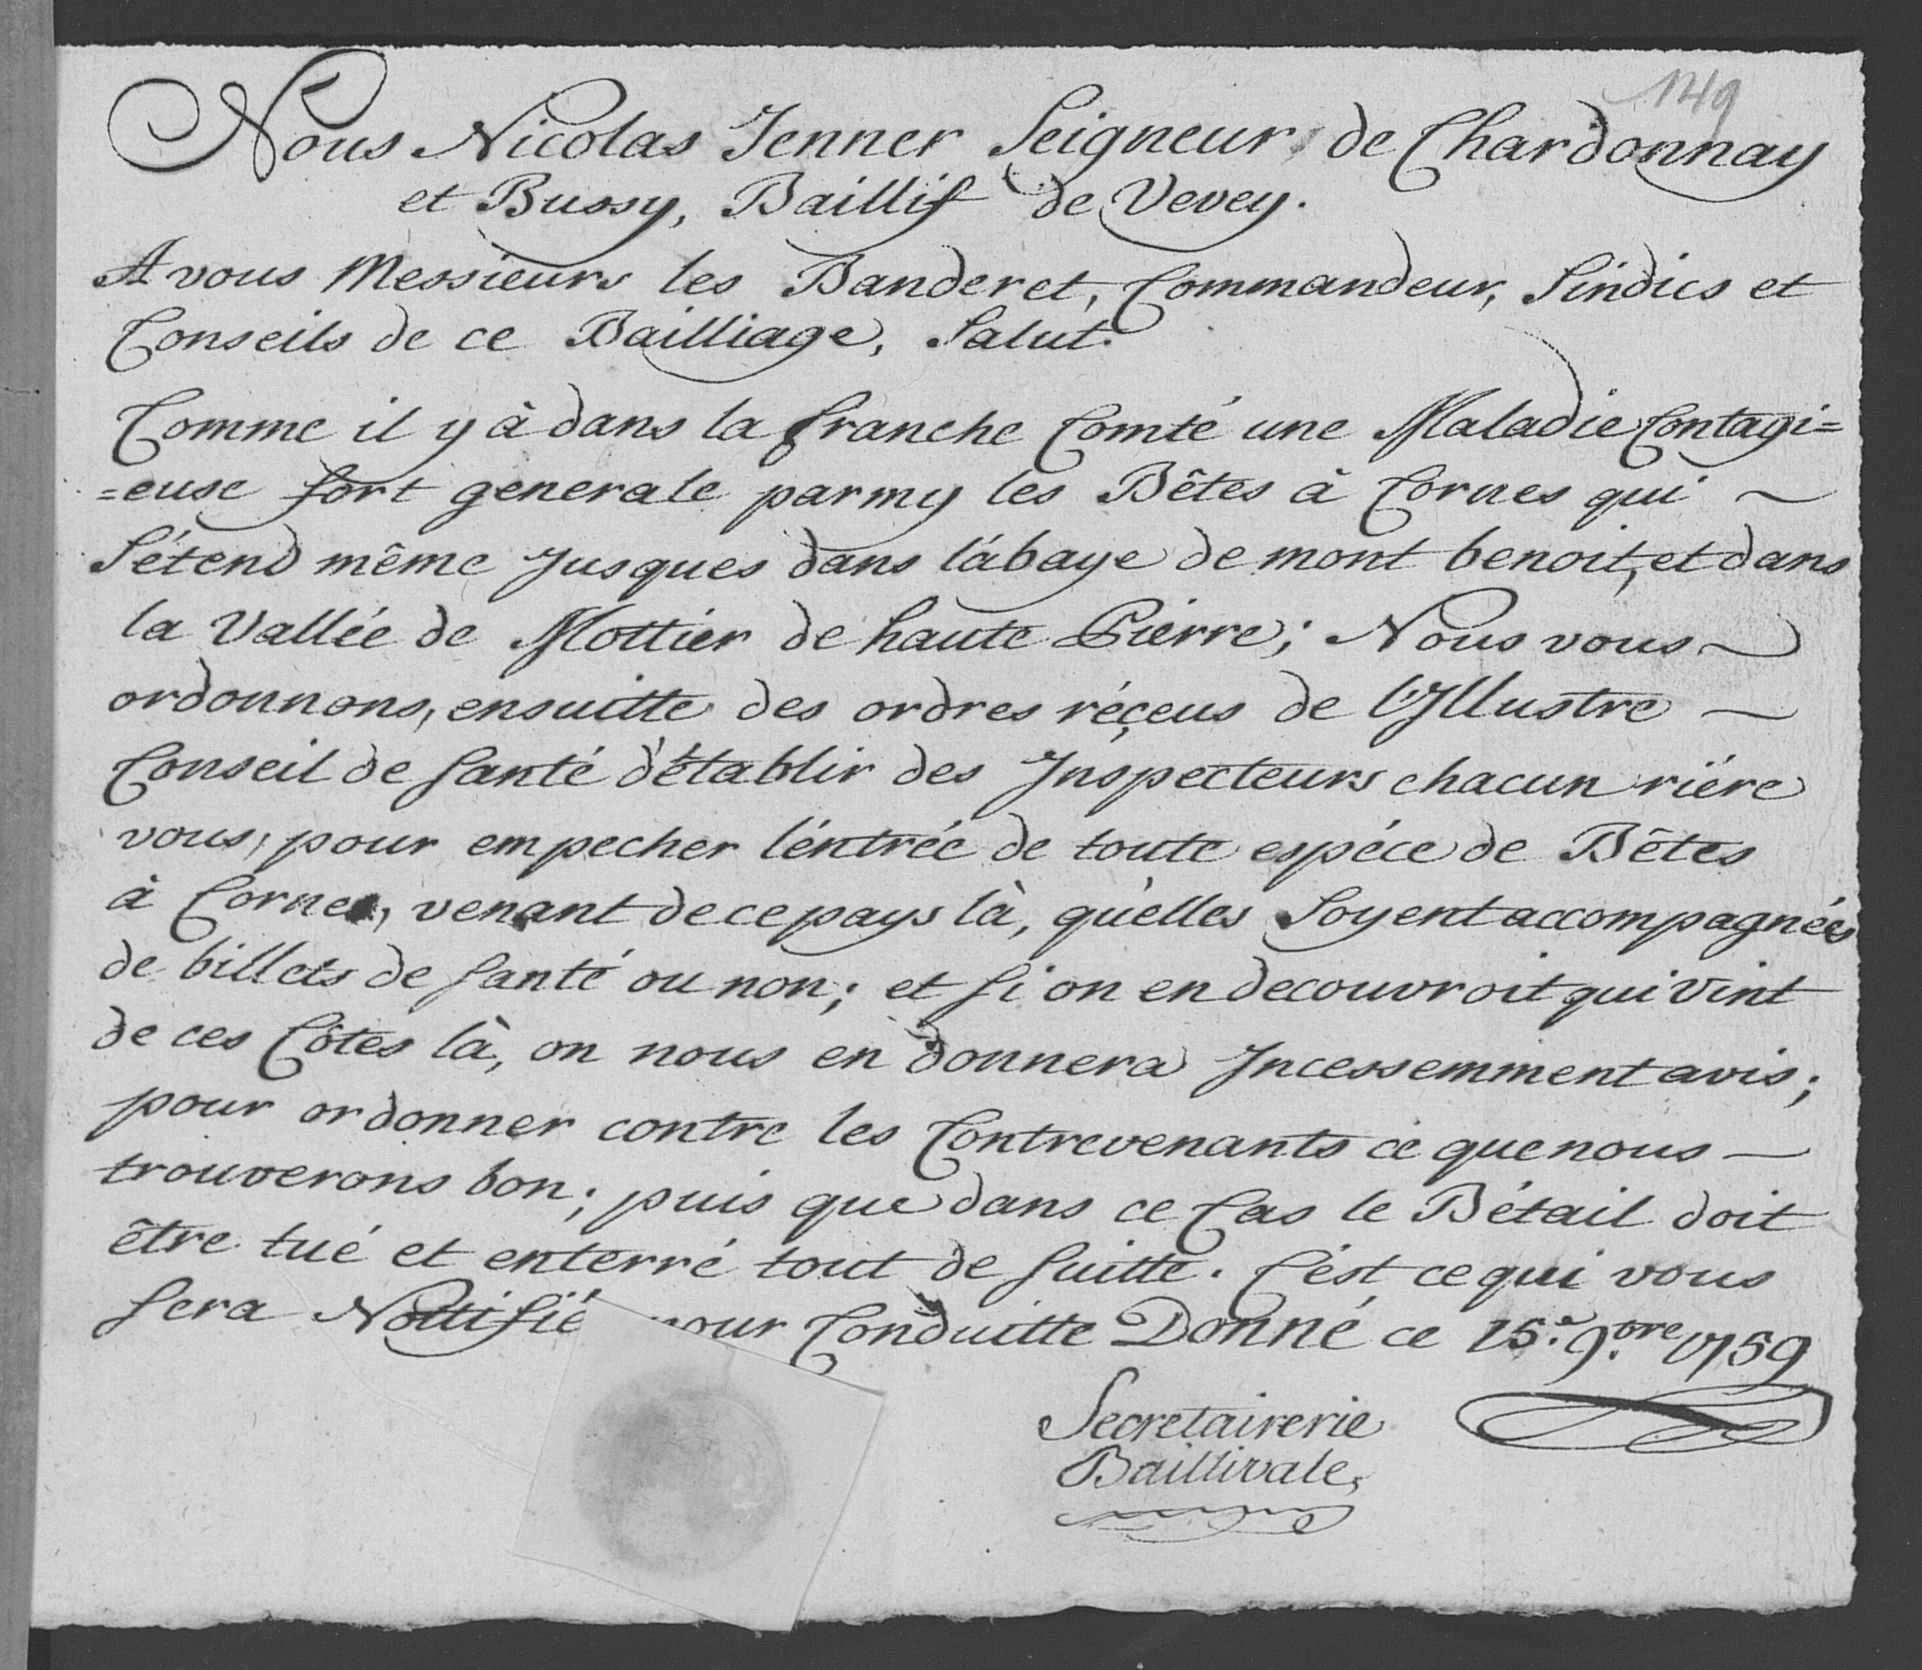 149
Nous Nicolas Jenner Seigneur de Chardonnay
et Bussy, Baillif de Vevey.
A vous Messieurs les Banderet, Commandeur, Sindics et
Conseils de ce Bailliage, Salut.
Comme il y à dans la franche Comté une Maladie Contagi=
=euse fort generale parmy les Bêtes à Cornes qui ~
S'étend même Jusques dans l'abaye de mont benoit, et dans
la Vallée de Mottier de haute Pierre; Nous vous ~
ordonnons, ensuitte des ordres réçeus de l'Jllustre —
Conseil de Santé d'établir des Jnspecteurs chacun riére
vous, pour empecher l'éntrée de toute espéce de Bêtes
à Cornes, venant de ce pays là, qu'elles Soyent accompagnées
de billets de Santé ou non; et si on en decouvroit qui vint
de ces Côtes là, on nous en donnera Jncessemment avis;
pour ordonner contre les Contrevenants ce que nous —
trouverons bon; puis que dans ce Cas le Bétail doit
être tué et enterré tout de Suitte. C'ést ce qui vous
Sera Nottifié pour Conduitte Donné ce 15.e 9.bre 1759
Secretairerie
Baillivale,